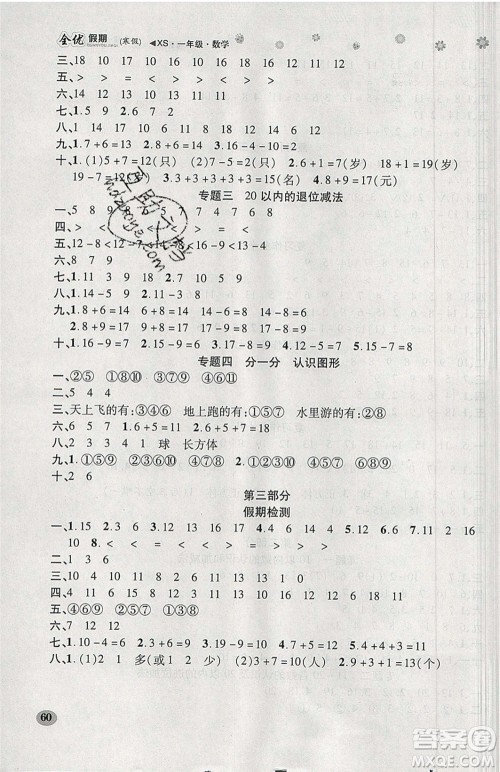 全优 假期 (寒假) ◀XS·一年级·数学
三、18 10 17 10 16 18 12 12
五、> > < = < >
六、14 12 10 13 11 8
七、1.5 9 2.9 17 3.10 17 4.5 15
八、1 14 17 9 18 10
十、1.7+6=13 2.8+5=13
十一、1.(1)5+7=12 (2)5+8=13 2.6+1=7(元) 18+1=19(元)
19-7=12( ) 3.3+3+3=9(元) 4.8+9=17(元)
专题三 20以内的退位减法
一、5 8 9
四、> < > < =
五、12-8<12-7 17-9>17-10 14-6=13-5
六、8 7 9 9
七、1.8 13 7 2.13 7 5 3.17 9 8
八、1.15-9=6 2.11-3=8 3.16-9=7
九、1.8+6=14 6+8=14 14-6=8 14-8=6
2.8+9=17 9+8=17 17-8=9 17-9=8
十、1.16-9=7 2.14-6=8 3.16-9=7
专题四 分一分 认识图形
一、②⑤ ①⑧⑩ ③⑦⑨ ④⑥
二、5 4 4
三、天上飞的有:③④⑥ 地上跑的有:①⑤⑦ 水里游的有:②⑧
六、6 5 7 1.6+5=11 2.7-5=2
八、2 3 4 1 球 长方体
九、1.①⑤⑨ ④⑥⑧ ②③⑦
十、2 6
第三部分
假期检测
一、1.15 2.13 9 3.16 17 4.4 14 5.6 12 6.7 11 2 16
10 8.> < < = > < > < >
二、1 3 6
三、10 4 8 8 13 6 11 13 13 1 0
四、4 11 9 6 12 7 18 17 5 8 10 16
五、④⑥⑨ ①③⑦ ②⑤⑧
六、7 12 12
七、1.10-4=6 2.9-6=3 3.5+4=9 4.3+8=11
八、1.(1)2 1 多(或1 2 少) (2)9+4=13(个)
60